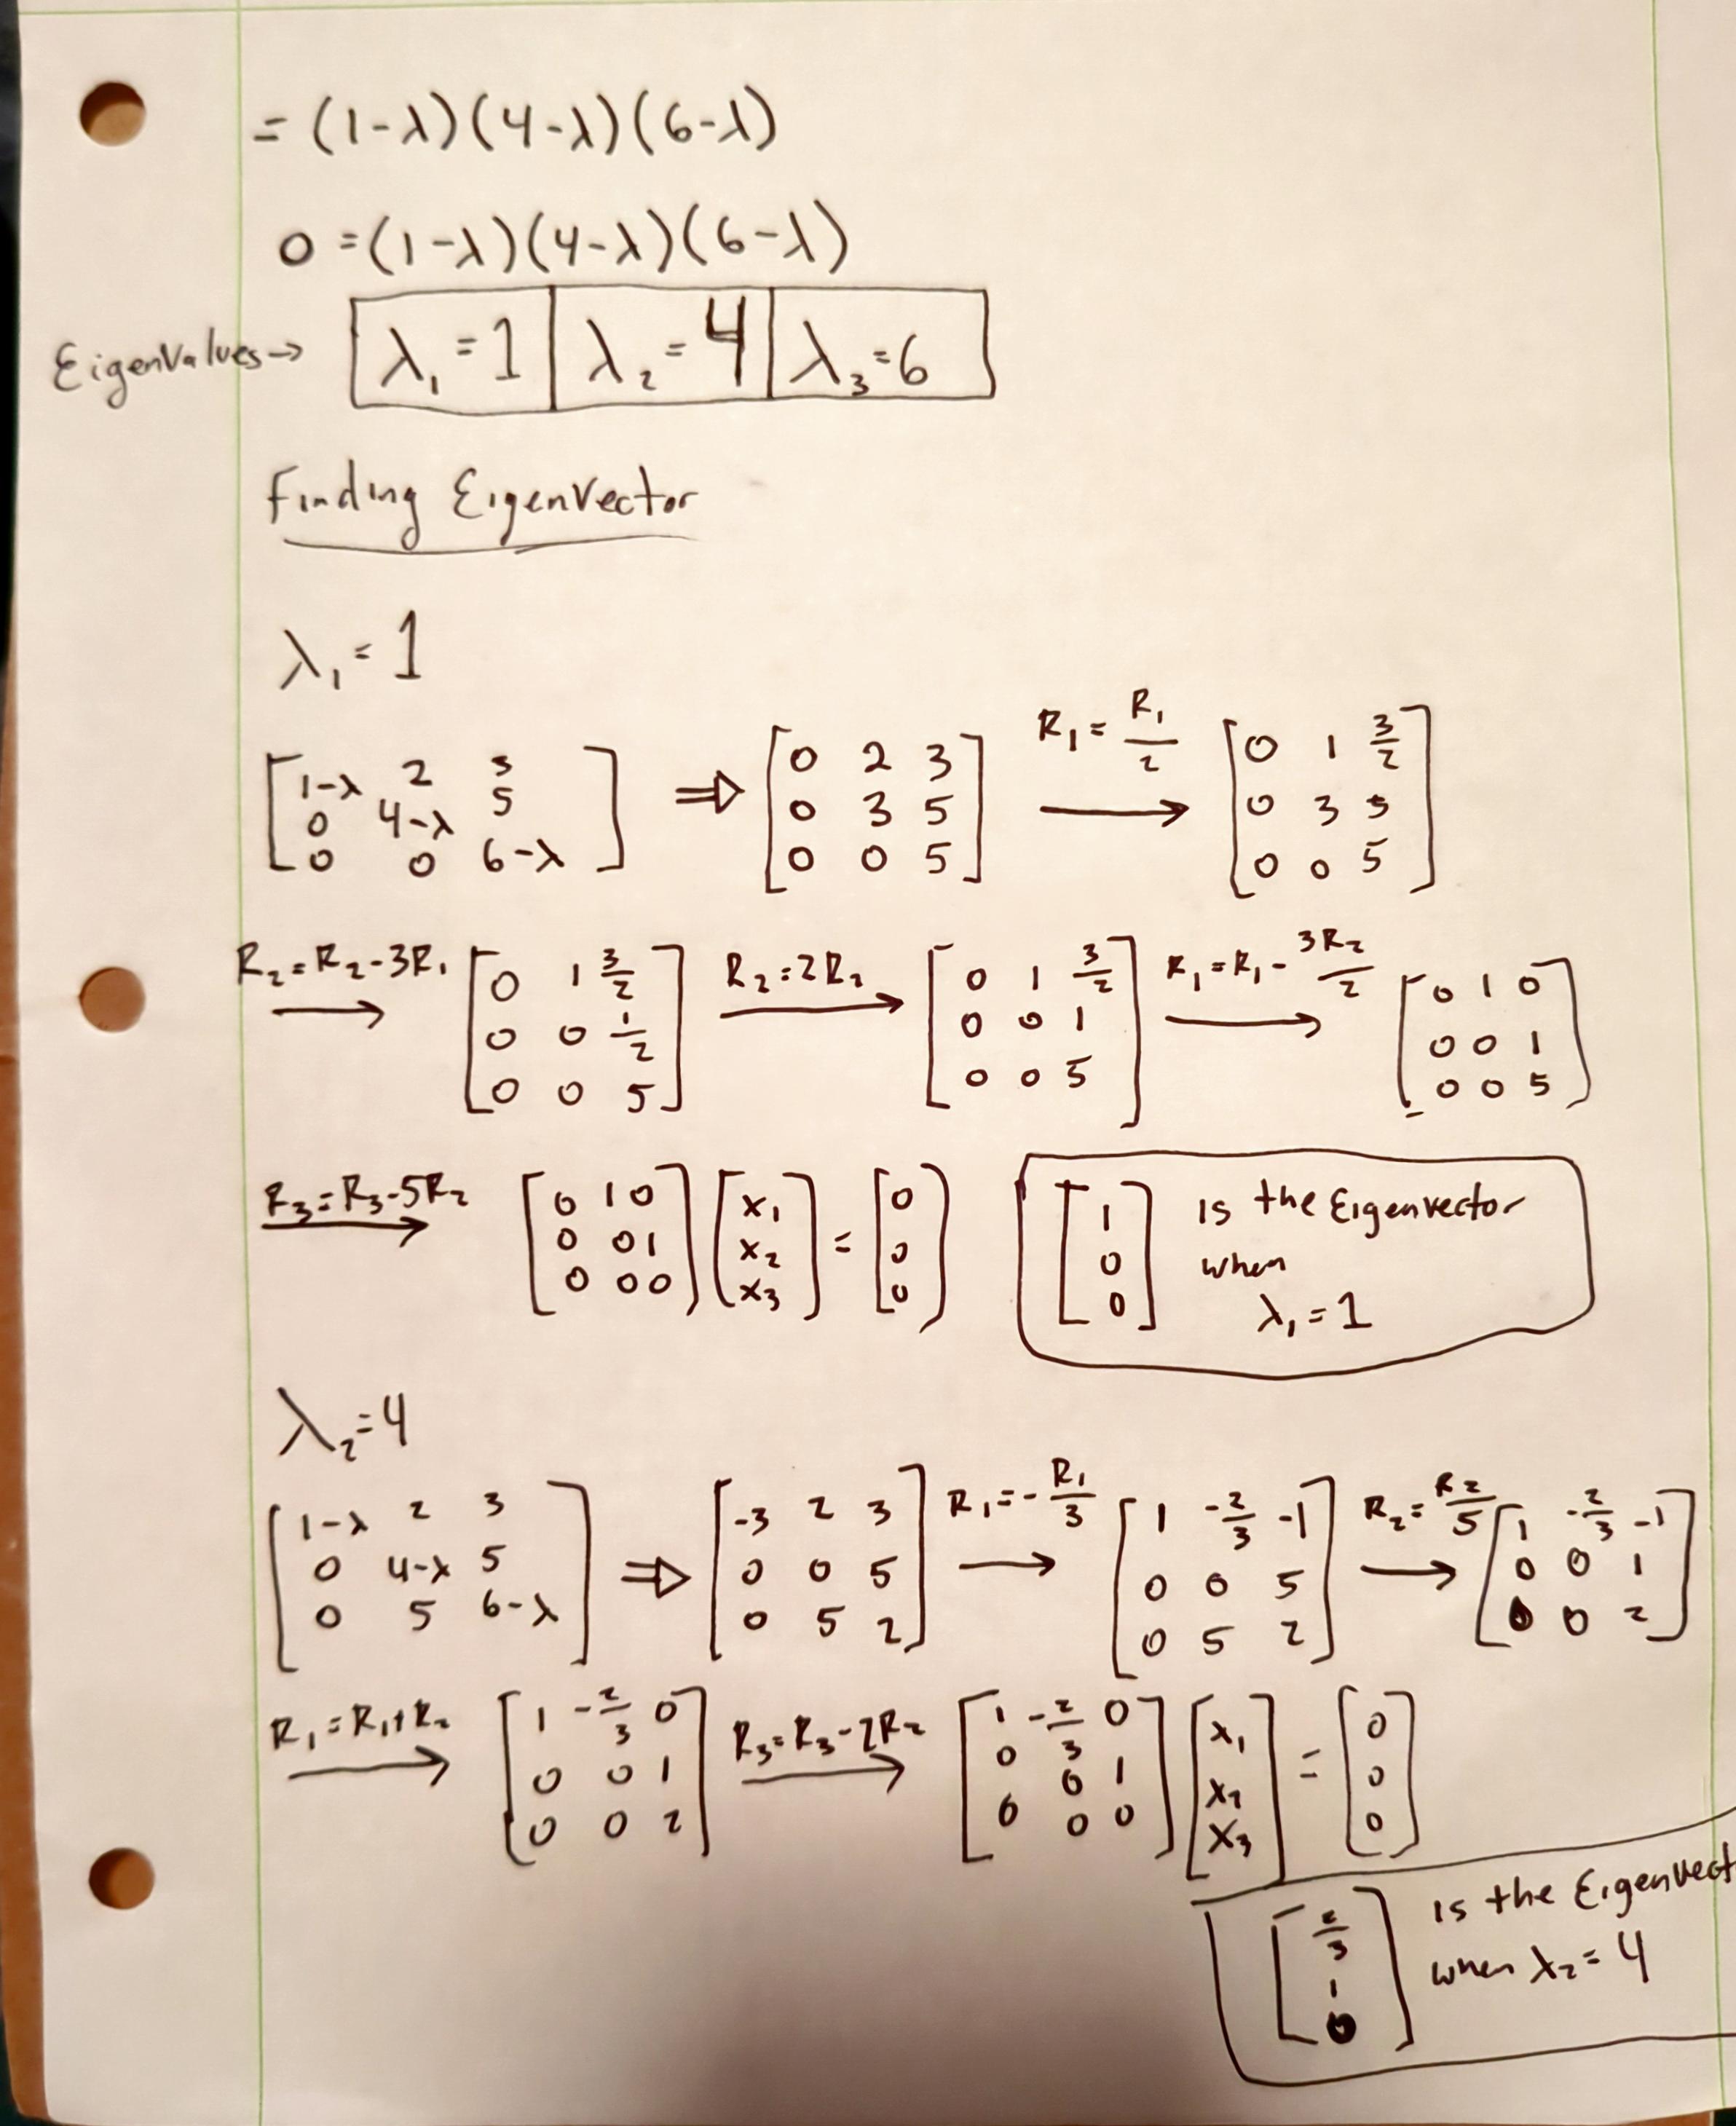 = (1-λ)(4-λ)(6-λ)
0 = (1-λ)(4-λ)(6-λ)
EigenValues → λ₁ = 1 | λ₂ = 4 | λ₃ = 6
Finding EigenVector
λ₁ = 1
[1-λ 2 3; 0 4-λ 5; 0 0 6-λ] ⇒ [0 2 3; 0 3 5; 0 0 5] R₁ = R₁/2 → [0 1 3/2; 0 3 5; 0 0 5]
R₂ = R₂-3R₁ → [0 1 3/2; 0 0 1/2; 0 0 5] R₂ = 2R₂ → [0 1 3/2; 0 0 1; 0 0 5] R₁ = R₁ - 3R₂/2 → [0 1 0; 0 0 1; 0 0 5]
R₃ = R₃-5R₂ → [0 1 0; 0 0 1; 0 0 0] [x₁; x₂; x₃] = [0; 0; 0] [1; 0; 0] is the Eigenvector when λ₁ = 1
λ₂ = 4
[1-λ 2 3; 0 4-λ 5; 0 5 6-λ] ⇒ [-3 2 3; 0 0 5; 0 5 2] R₁ = -R₁/3 → [1 -2/3 -1; 0 0 5; 0 5 2] R₂ = R₂/5 → [1 -2/3 -1; 0 0 1; 0 0 2]
R₁ = R₁+R₂ → [1 -2/3 0; 0 0 1; 0 0 2] R₃ = R₃-2R₂ → [1 -2/3 0; 0 0 1; 0 0 0] [x₁; x₂; x₃] = [0; 0; 0]
[2/3; 1; 0] is the Eigenvect
when λ₂ = 4